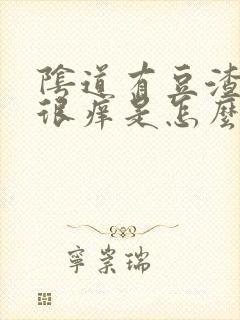 陰道有豆渣
很痒是怎麼
寧崇瑞